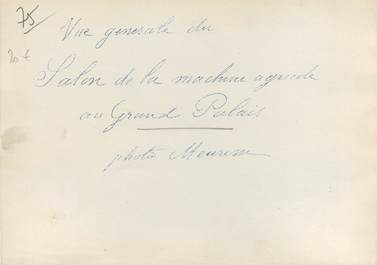 75
20 €
Vue generale du
Salon de la machine agricole
au Grand Palais
photo Meurisse